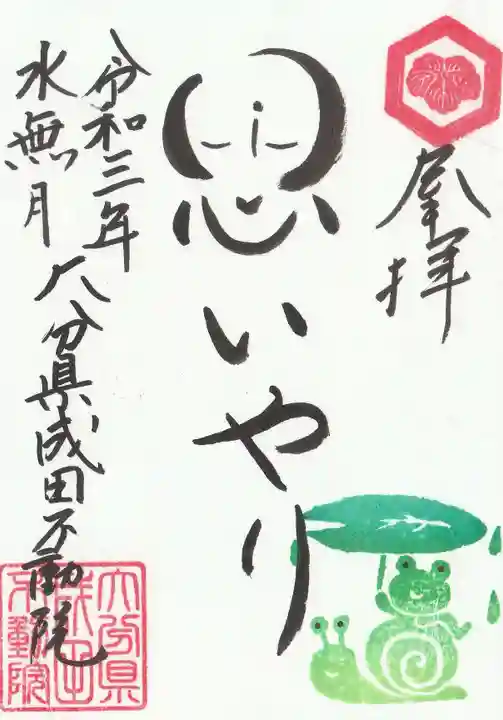 奉拝
思いやり
令和三年
水無月 大分県成田不動院
大分県
成田
不動院